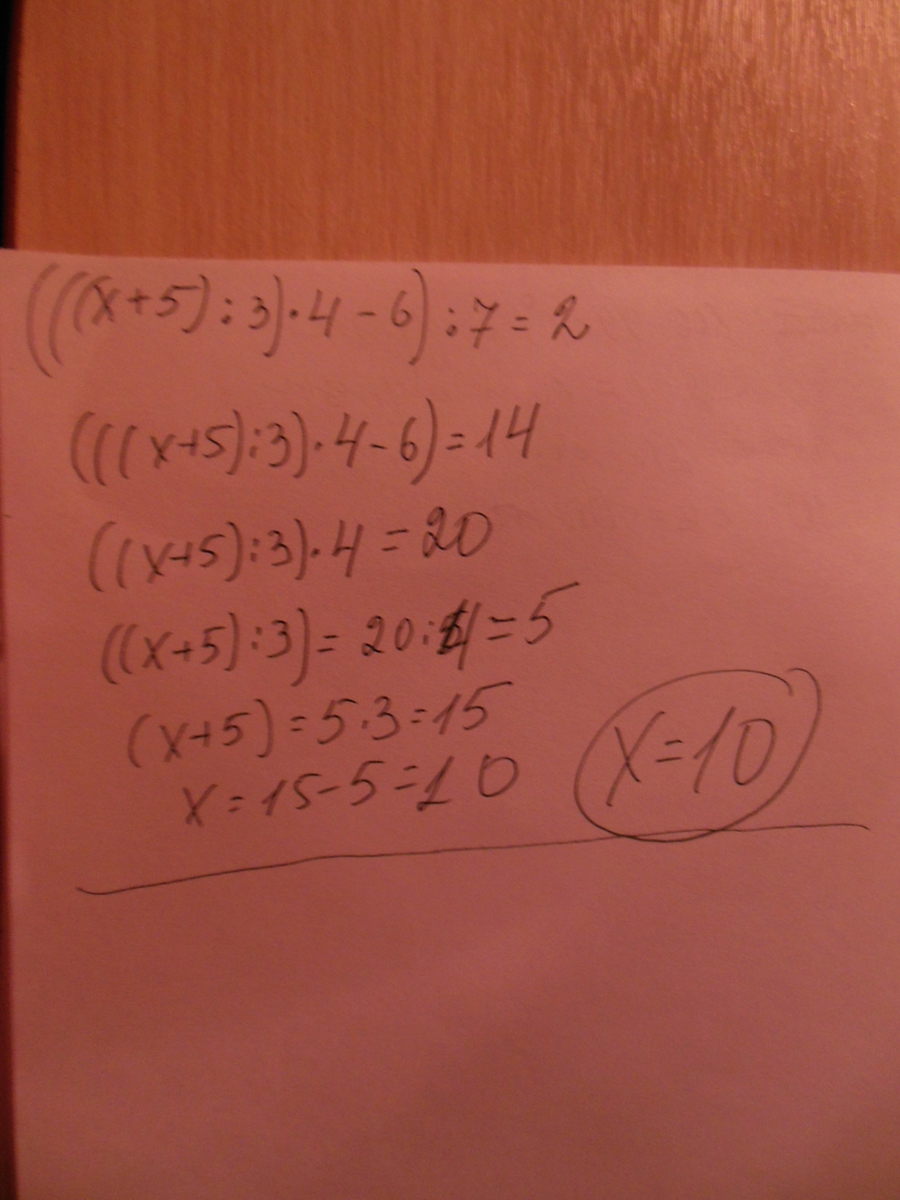 (((x+5):3)·4-6):7=2
(((x+5):3)·4-6)=14
((x+5):3)·4=20
((x+5):3)=20:4=5
(x+5)=5·3=15
x=15-5=10
x=10